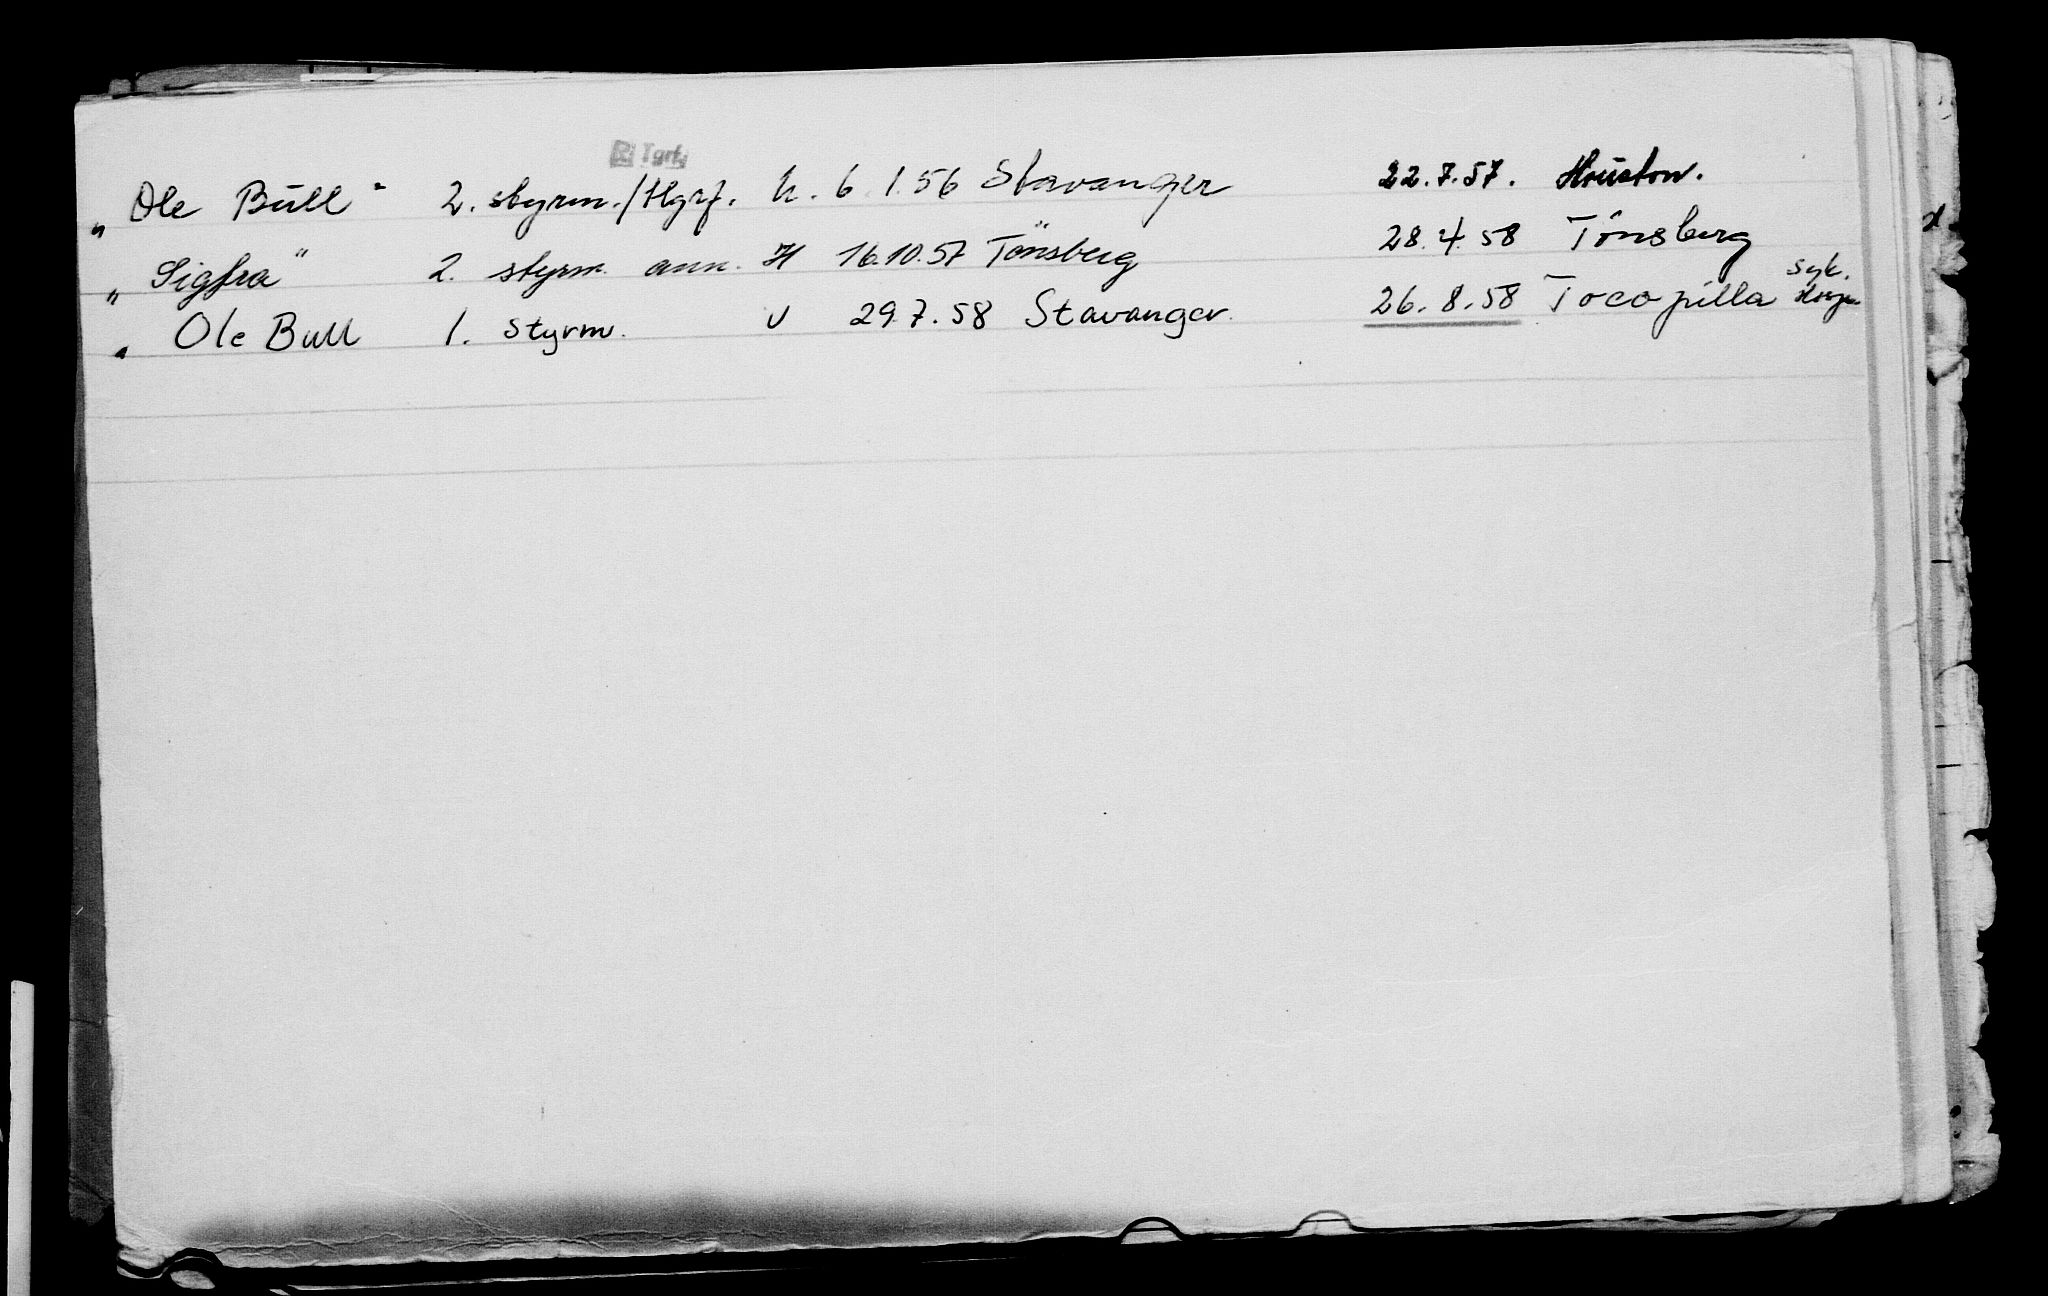 R. Tgrf.
„ Ole Bull " 2. styrm./tlgrf. U. 6.1.56 Stavanger 22.7.57. Houston.
„ Sigfra " 2. styrm. ann. H 16.10.57 Tönsberg 28.4.58 Tönsberg
" Ole Bull 1. Styrm. U 29.7.58 Stavanger. 26.8.58 Tocopilla syk.